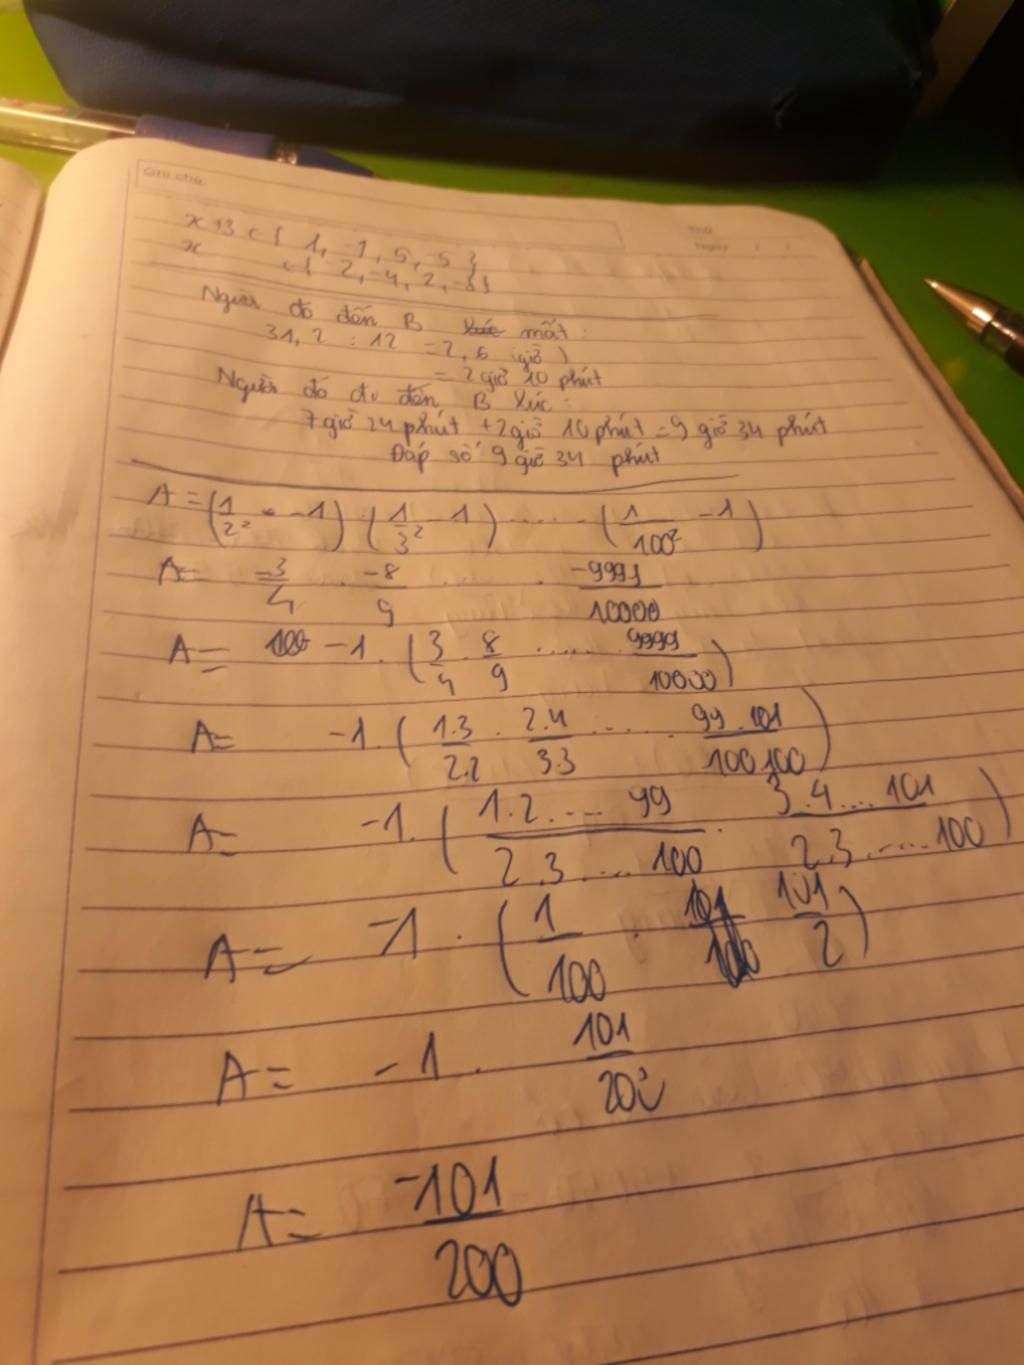 Ghi chú:
Thứ
Ngày / /
x+3 ∈ { 1, -1, 5, -5 }
x ∈ { -2, -4, 2, -8 }
Người đó đến B mất:
31,2 : 12 = 2,6 (giờ)
= 2 giờ 10 phút
Người đó đi đến B lúc:
7 giờ 24 phút + 2 giờ 10 phút = 9 giờ 34 phút
Đáp số 9 giờ 34 phút
A = (1/2² - 1) . (1/3² - 1) ..... (1/100² - 1)
A = -3/4 . -8/9 . . -9999/10000
A = -1 . (3/4 . 8/9 ..... 9999/10000)
A = -1 . (1.3/2.2 . 2.4/3.3 ..... 99.101/100.100)
A = -1 . (1.2....99/2.3....100 . 3.4...101/2.3.....100)
A = -1 . (1/100 . 101/2)
A = -1 . 101/200
A = -101/200